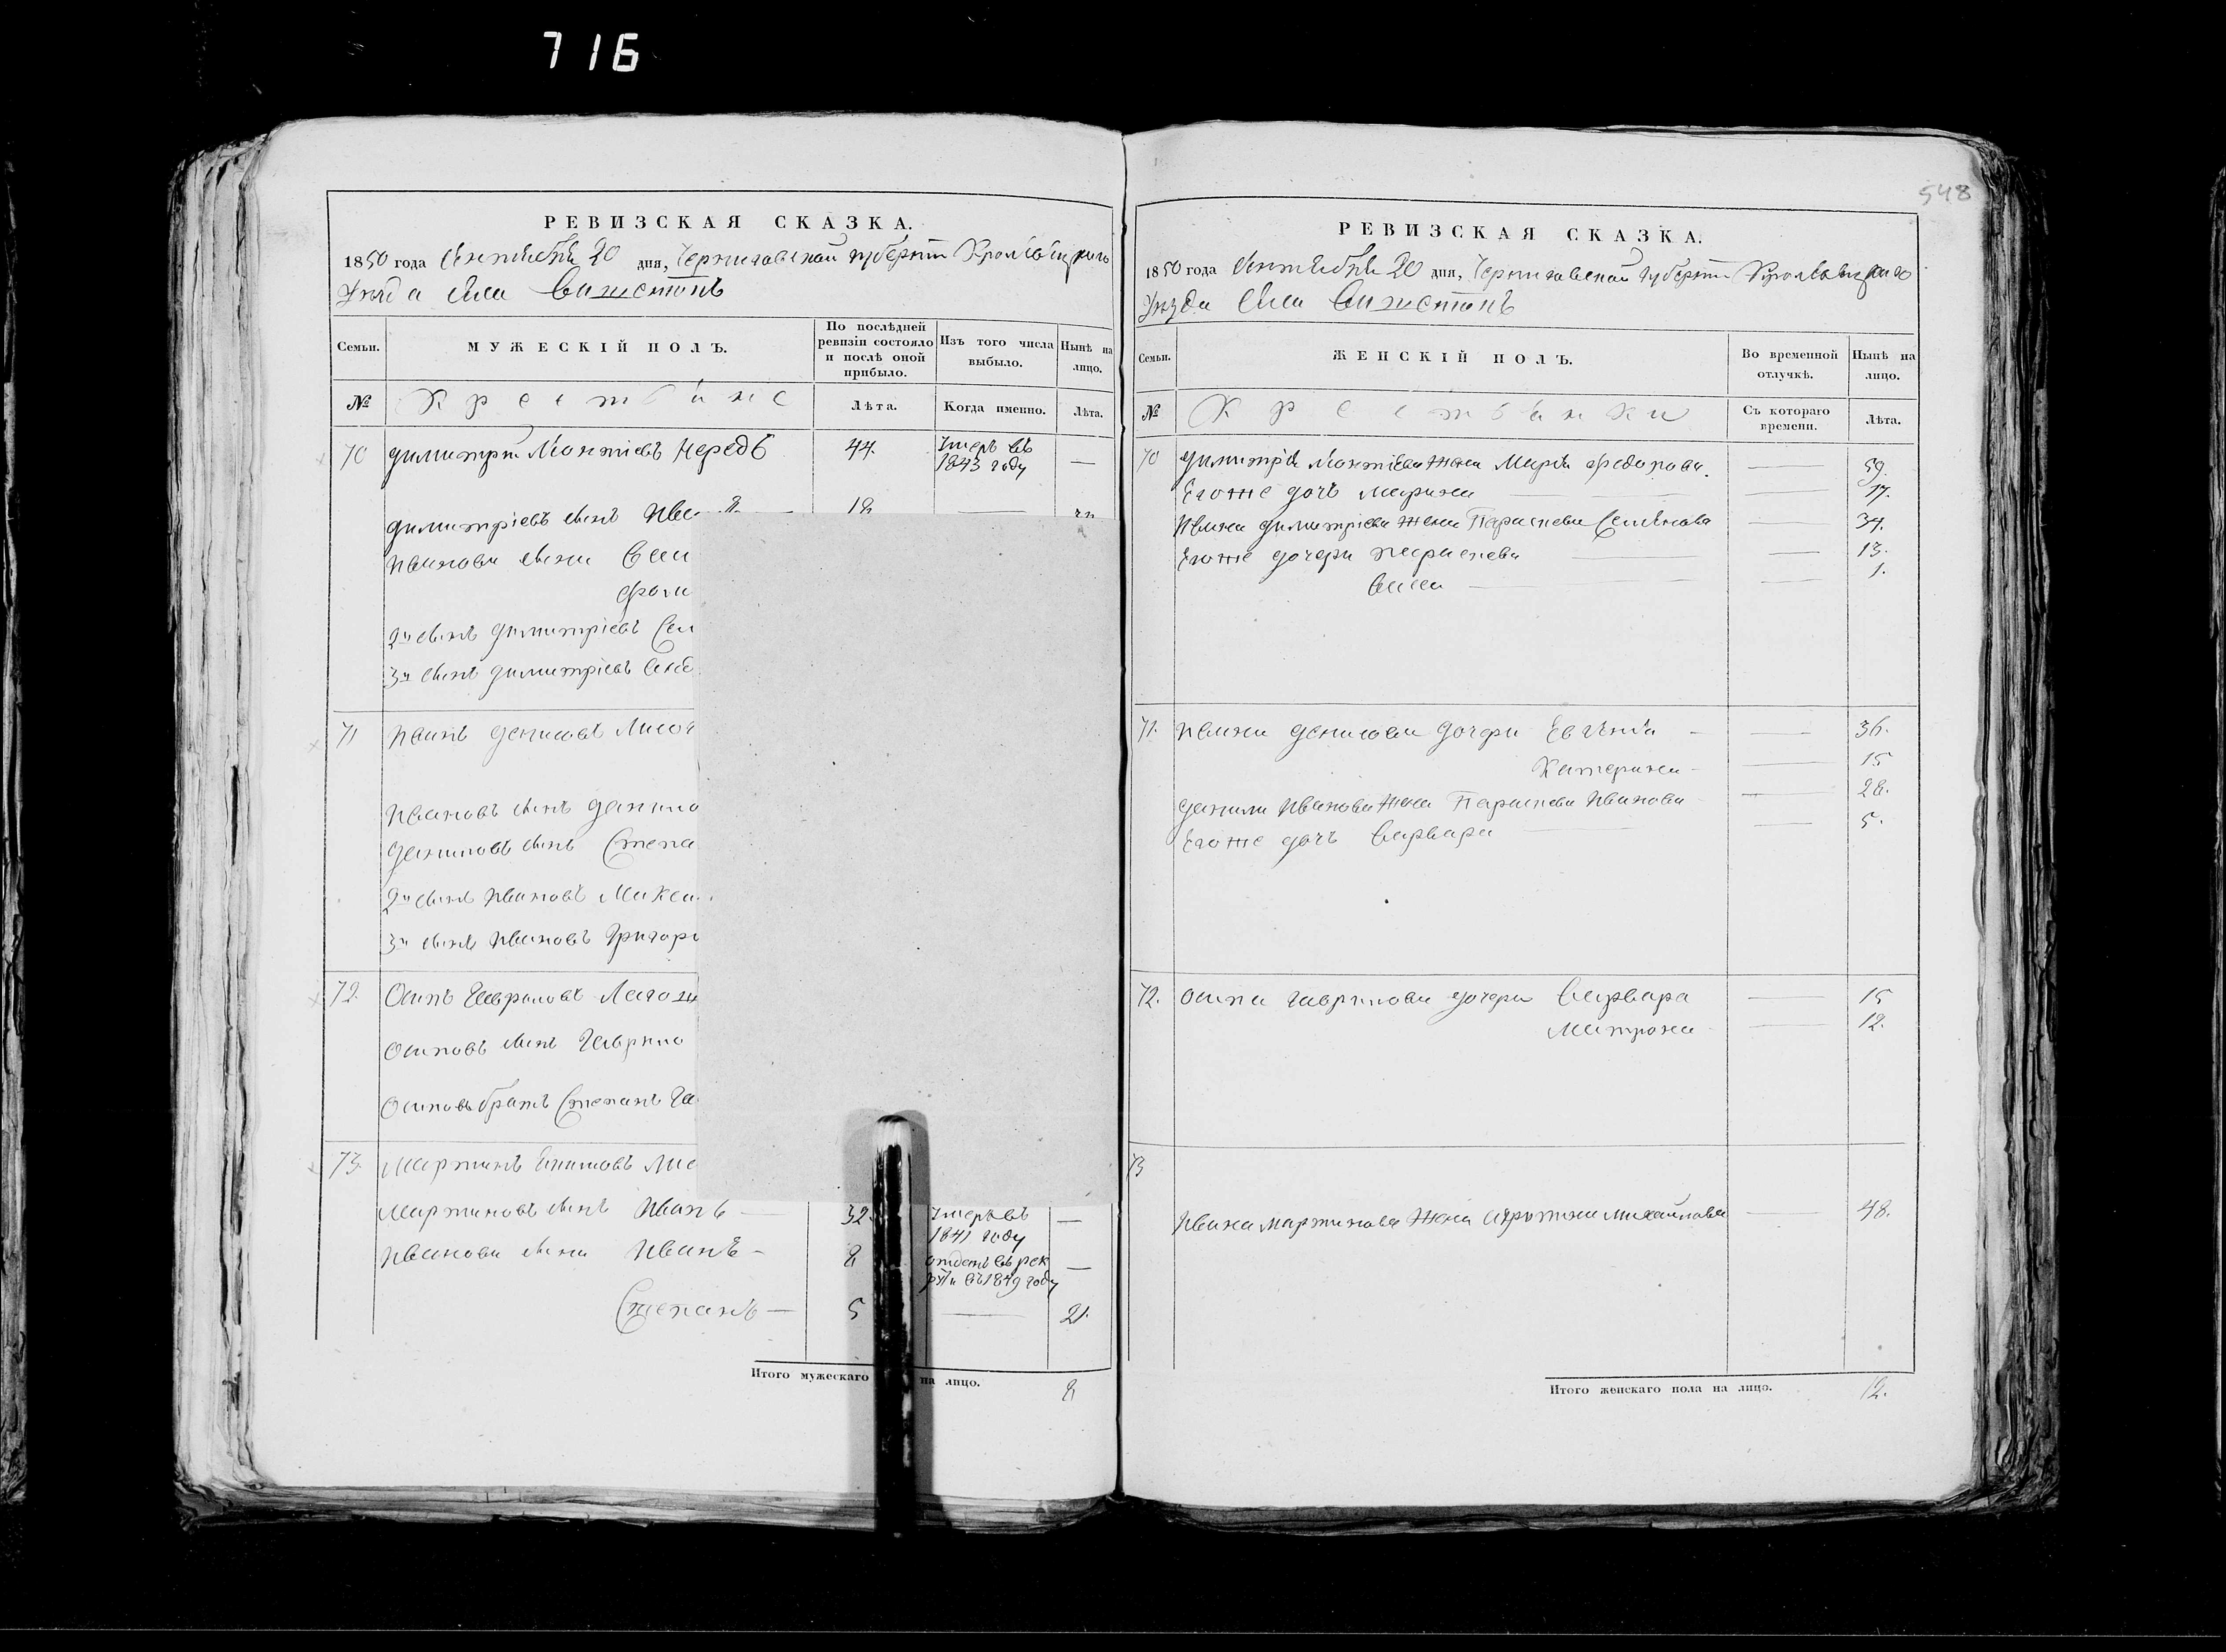 716
548
РЕВИЗСКАЯ СКАЗКА.
1850 года Сентября 20 дня, Черниговской губерніи Кролевецкаго
Уѣзда села
Семьи.
МУЖЕСКІЙ ПОЛЪ.
По послѣдней ревизіи состояло и послѣ оной прибыло.
Изъ того числа выбыло.
Нынѣ на лицо.
№
Крестьяне
Лѣта.
Когда именно.
Лѣта.
70 Димитрій Леонтіевъ 44. Умеръ въ 1843 году —
Димитріевъ сынъ 18 —
Иванови сыни
2й сынъ Димитріевъ
3й сынъ Димитріевъ
71 Иванъ Денисовъ
Ивановъ сынъ Данило
Даниловъ сынъ Степа
2й сынъ Ивановъ Макси
3й сынъ Ивановъ Григорі
72. Осипъ Гавриловъ
Осиповъ сынъ Гаврило
Осиповъ братъ Степанъ Га
73. Мартинъ
Мартиновъ сынъ Иванъ — 32. Умеръ въ 1841 году —
Иванови сыни Иванъ — 8 отданъ въ рекруты въ 1849 году —
Степанъ — 5 — 21.
Итого мужескаго на лицо. 8
РЕВИЗСКАЯ СКАЗКА.
1850 года Сентября 20 дня, Черниговской губерніи Кролевецкаго
Уѣзда села
Семьи.
ЖЕНСКІЙ ПОЛЪ.
Во временной отлучкѣ.
Нынѣ на лицо.
№
Крестьянки
Съ котораго времени.
Лѣта.
70 Димитрія Леонтіева жена Марія Федорова. — 59.
Егоже дочь Марина — 17.
Ивана Димитріева жена Параскева Семенова — 34.
Егоже дочери Параскева — 13.
— 1.
71. Ивана Денисова дочери Евгенія — 36.
Катерина — 15
Данили Иванова жена Параскева Иванова — 28.
Егоже дочь Варвара — 5.
72. Осипа Гаврилова дочери Варвара — 15
Матрона — 12.
73
Ивана Мартинова жена Михайлова — 48.
Итого женскаго пола на лицо. 12.